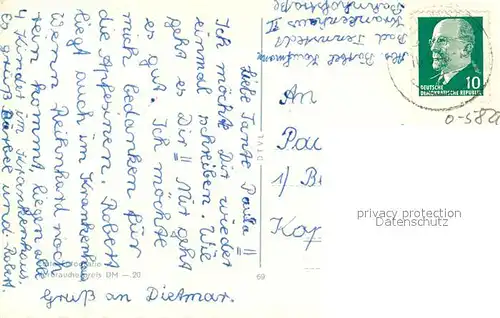 Liebe Tante Paula !!
Ich möchte Dir wieder
einmal schreiben. Wie
geht es Dir !! Mir geht
es gut. Ich möchte
mich bedanken für
die Apfelsinen. Robert
liegt auch im Krankenhaus
Wenn Reihnhard noch
rein kommt, liegen alle
4 Kinder im Krankenhaus.
Es grüßt Bärbel und Robert.
Gruß an Dietmar.
Verbraucherpreis DM —.20
69
Abs. Bärbel
Bad Tennstedt
Krankenhaus II
Bahnhofstraße
An
Pau
1/ B
Kop
DEUTSCHE
DEMOKRATISCHE REPUBLIK
10
0-582
privacy protection
Datenschutz